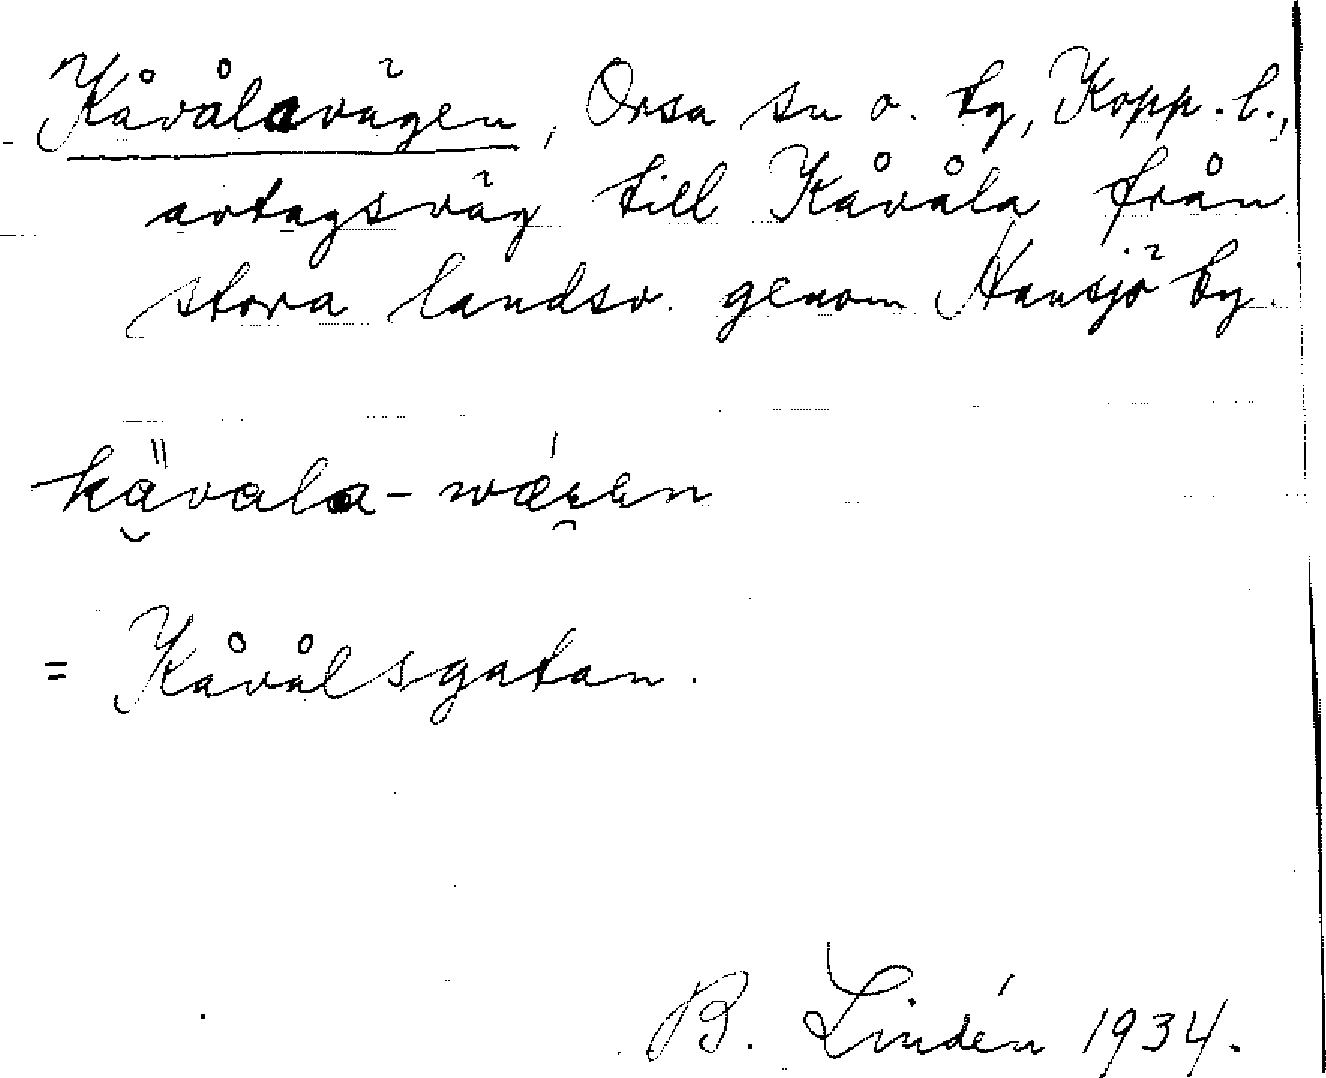 Kåvålavägen, Orsa sn o. by, Kopp. l.,
avtagsväg till Kåvåla från
stora landsv. genom Hansjö by.
kävala-wägen
= Kåvålsgatan.
B. Lindén 1934.